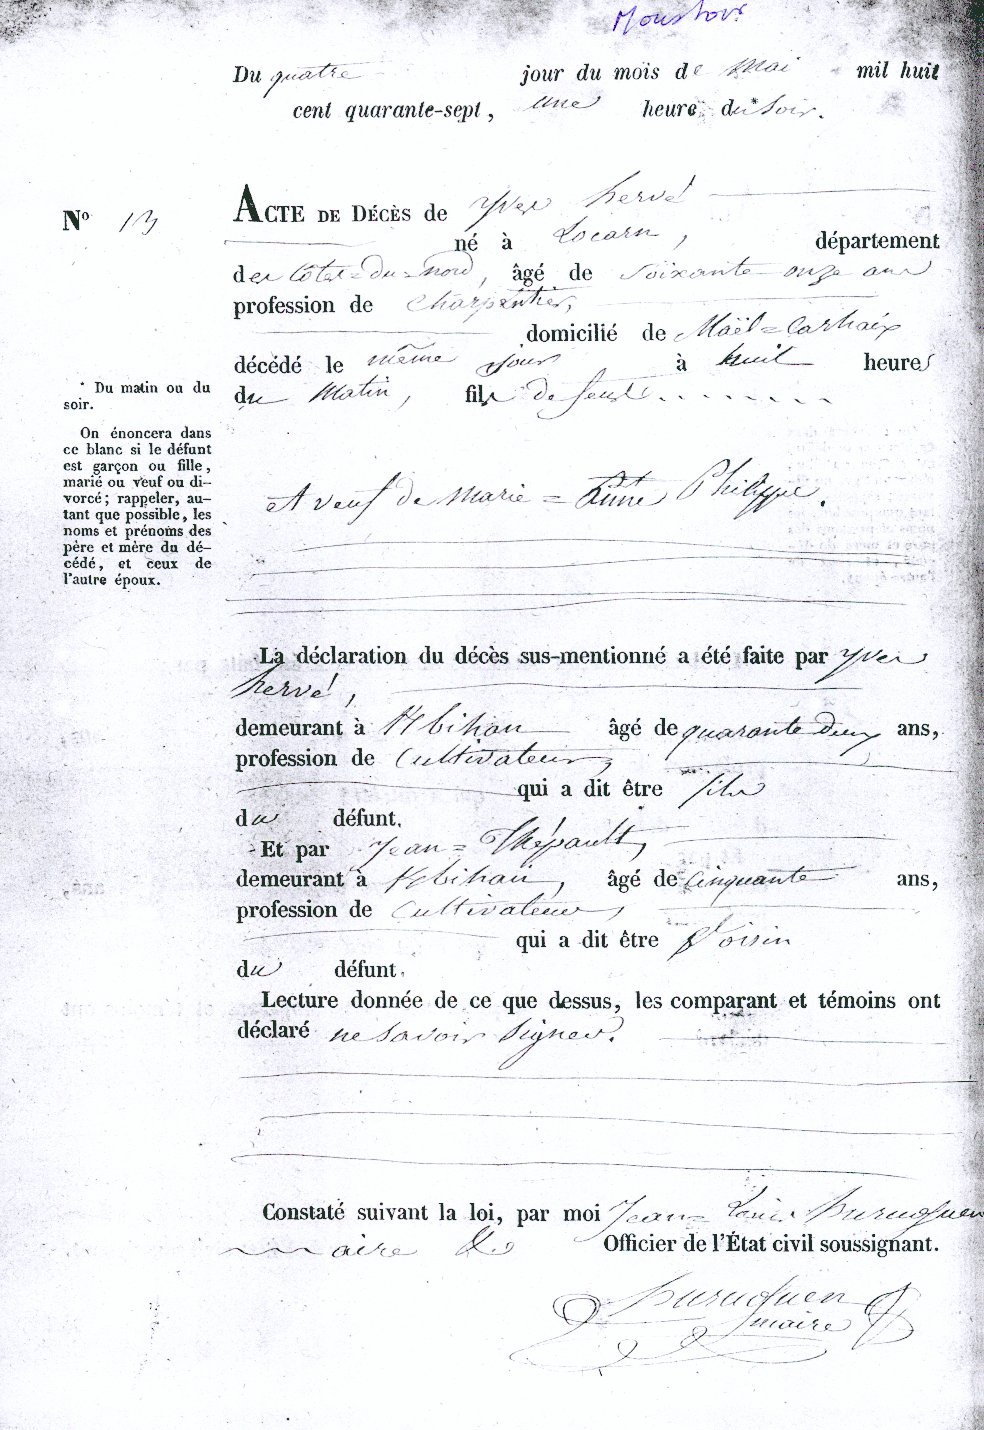 Du quatre jour du mois de mai mil huit
cent quarante-sept, une heure du * soir.
N° 13
ACTE DE DÉCÈS de Yves hervé
né à Locarn, département
des Côtes-du-Nord, âgé de soixante-onze ans
profession de Charpentier,
domicilié de Maël-Carhaix
décédé le même jour à huit heures
du matin, fils de feus . . . . . . . .
* Du matin ou du
soir.
On énoncera dans
ce blanc si le défunt
est garçon ou fille,
marié ou veuf ou di-
vorcé ; rappeler, au-
tant que possible, les
noms et prénoms des
père et mère du dé-
cédé, et ceux de
l'autre époux.
et veuf de Marie = Philippe.
La déclaration du décès sus-mentionné a été faite par Yves
hervé,
demeurant à Kbihan âgé de quarante deux ans,
profession de Cultivateur,
qui a dit être fils
du défunt.
Et par Jean = Thépault,
demeurant à Kbihan, âgé de Cinquante ans,
profession de Cultivateur,
qui a dit être Voisin
du défunt.
Lecture donnée de ce que dessus, les comparant et témoins ont
déclaré ne savoir signer.
Constaté suivant la loi, par moi Jean = Louis
maire Officier de l'État civil soussignant.
maire